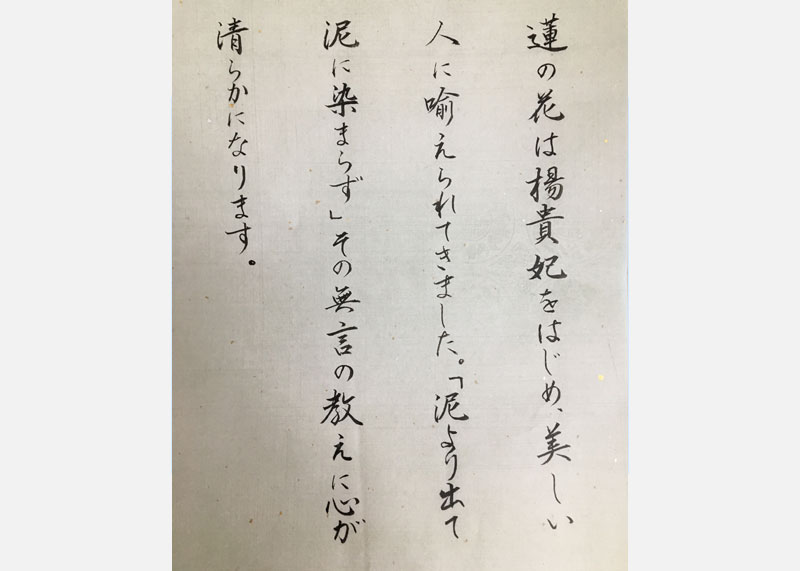 蓮の花は楊貴妃をはじめ、美しい
人に喩えられてきました。「泥より出て
泥に染まらず」その無言の教えに心が
清らかになります。